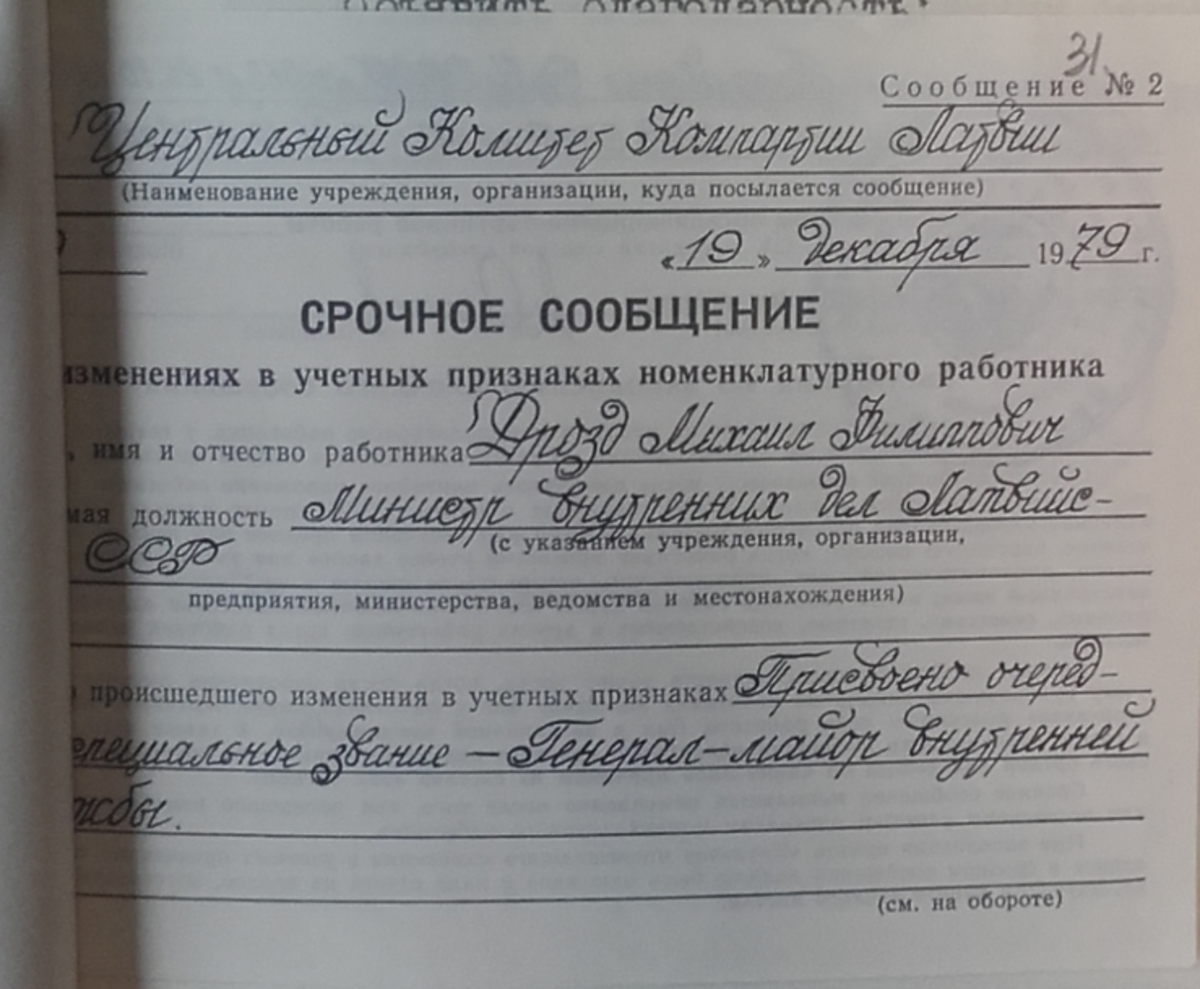 31.
Сообщение № 2
Центральный Комитет Компартии Латвии
(Наименование учреждения, организации, куда посылается сообщение)
«19» декабря 1979 г.
СРОЧНОЕ СООБЩЕНИЕ
изменениях в учетных признаках номенклатурного работника
, имя и отчество работника Дрозд Михаил Филиппович
мая должность Министр внутренних дел Латвийс-
(с указанием учреждения, организации,
ССР
предприятия, министерства, ведомства и местонахождения)
происшедшего изменения в учетных признаках Присвоено очеред-
специальное звание — Генерал-майор внутренней
жбы.
(см. на обороте)